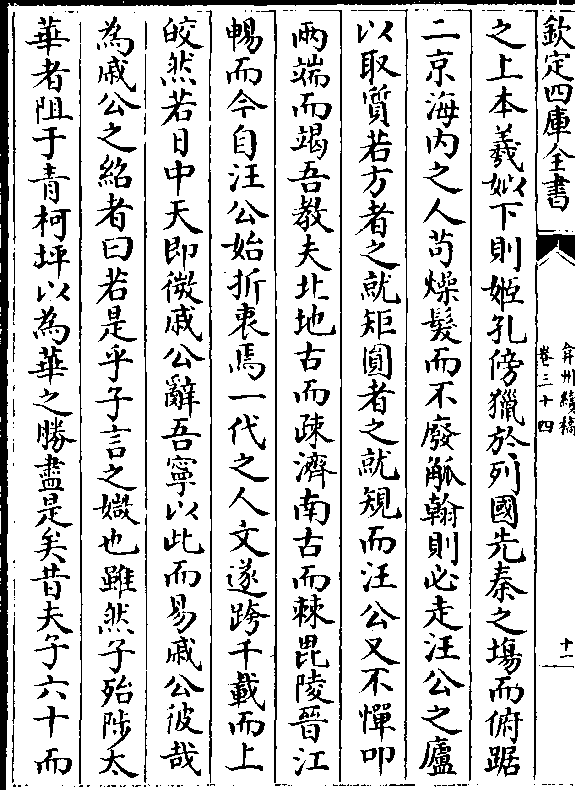 欽定四庫全書
弇州續稿
卷三十四
十一
之上本羲姒以下則姬孔傍獵於列國先秦之塲而俯踞
二京海内之人苟燥髮而不廢觚翰則必走汪公之廬
以取質若方者之就矩圓者之就規而汪公又不憚叩
兩端而竭吾教夫北地古而疎濟南古而棘毘陵晉江
暢而今自汪公始折衷焉一代之人文遂跨千載而上
皎然若日中天即微戚公辭吾寧以此而易戚公彼哉
為戚公之紹者曰若是乎子言之媺也雖然子殆陟太
華者阻于青柯坪以為華之勝盡是矣昔夫子六十而